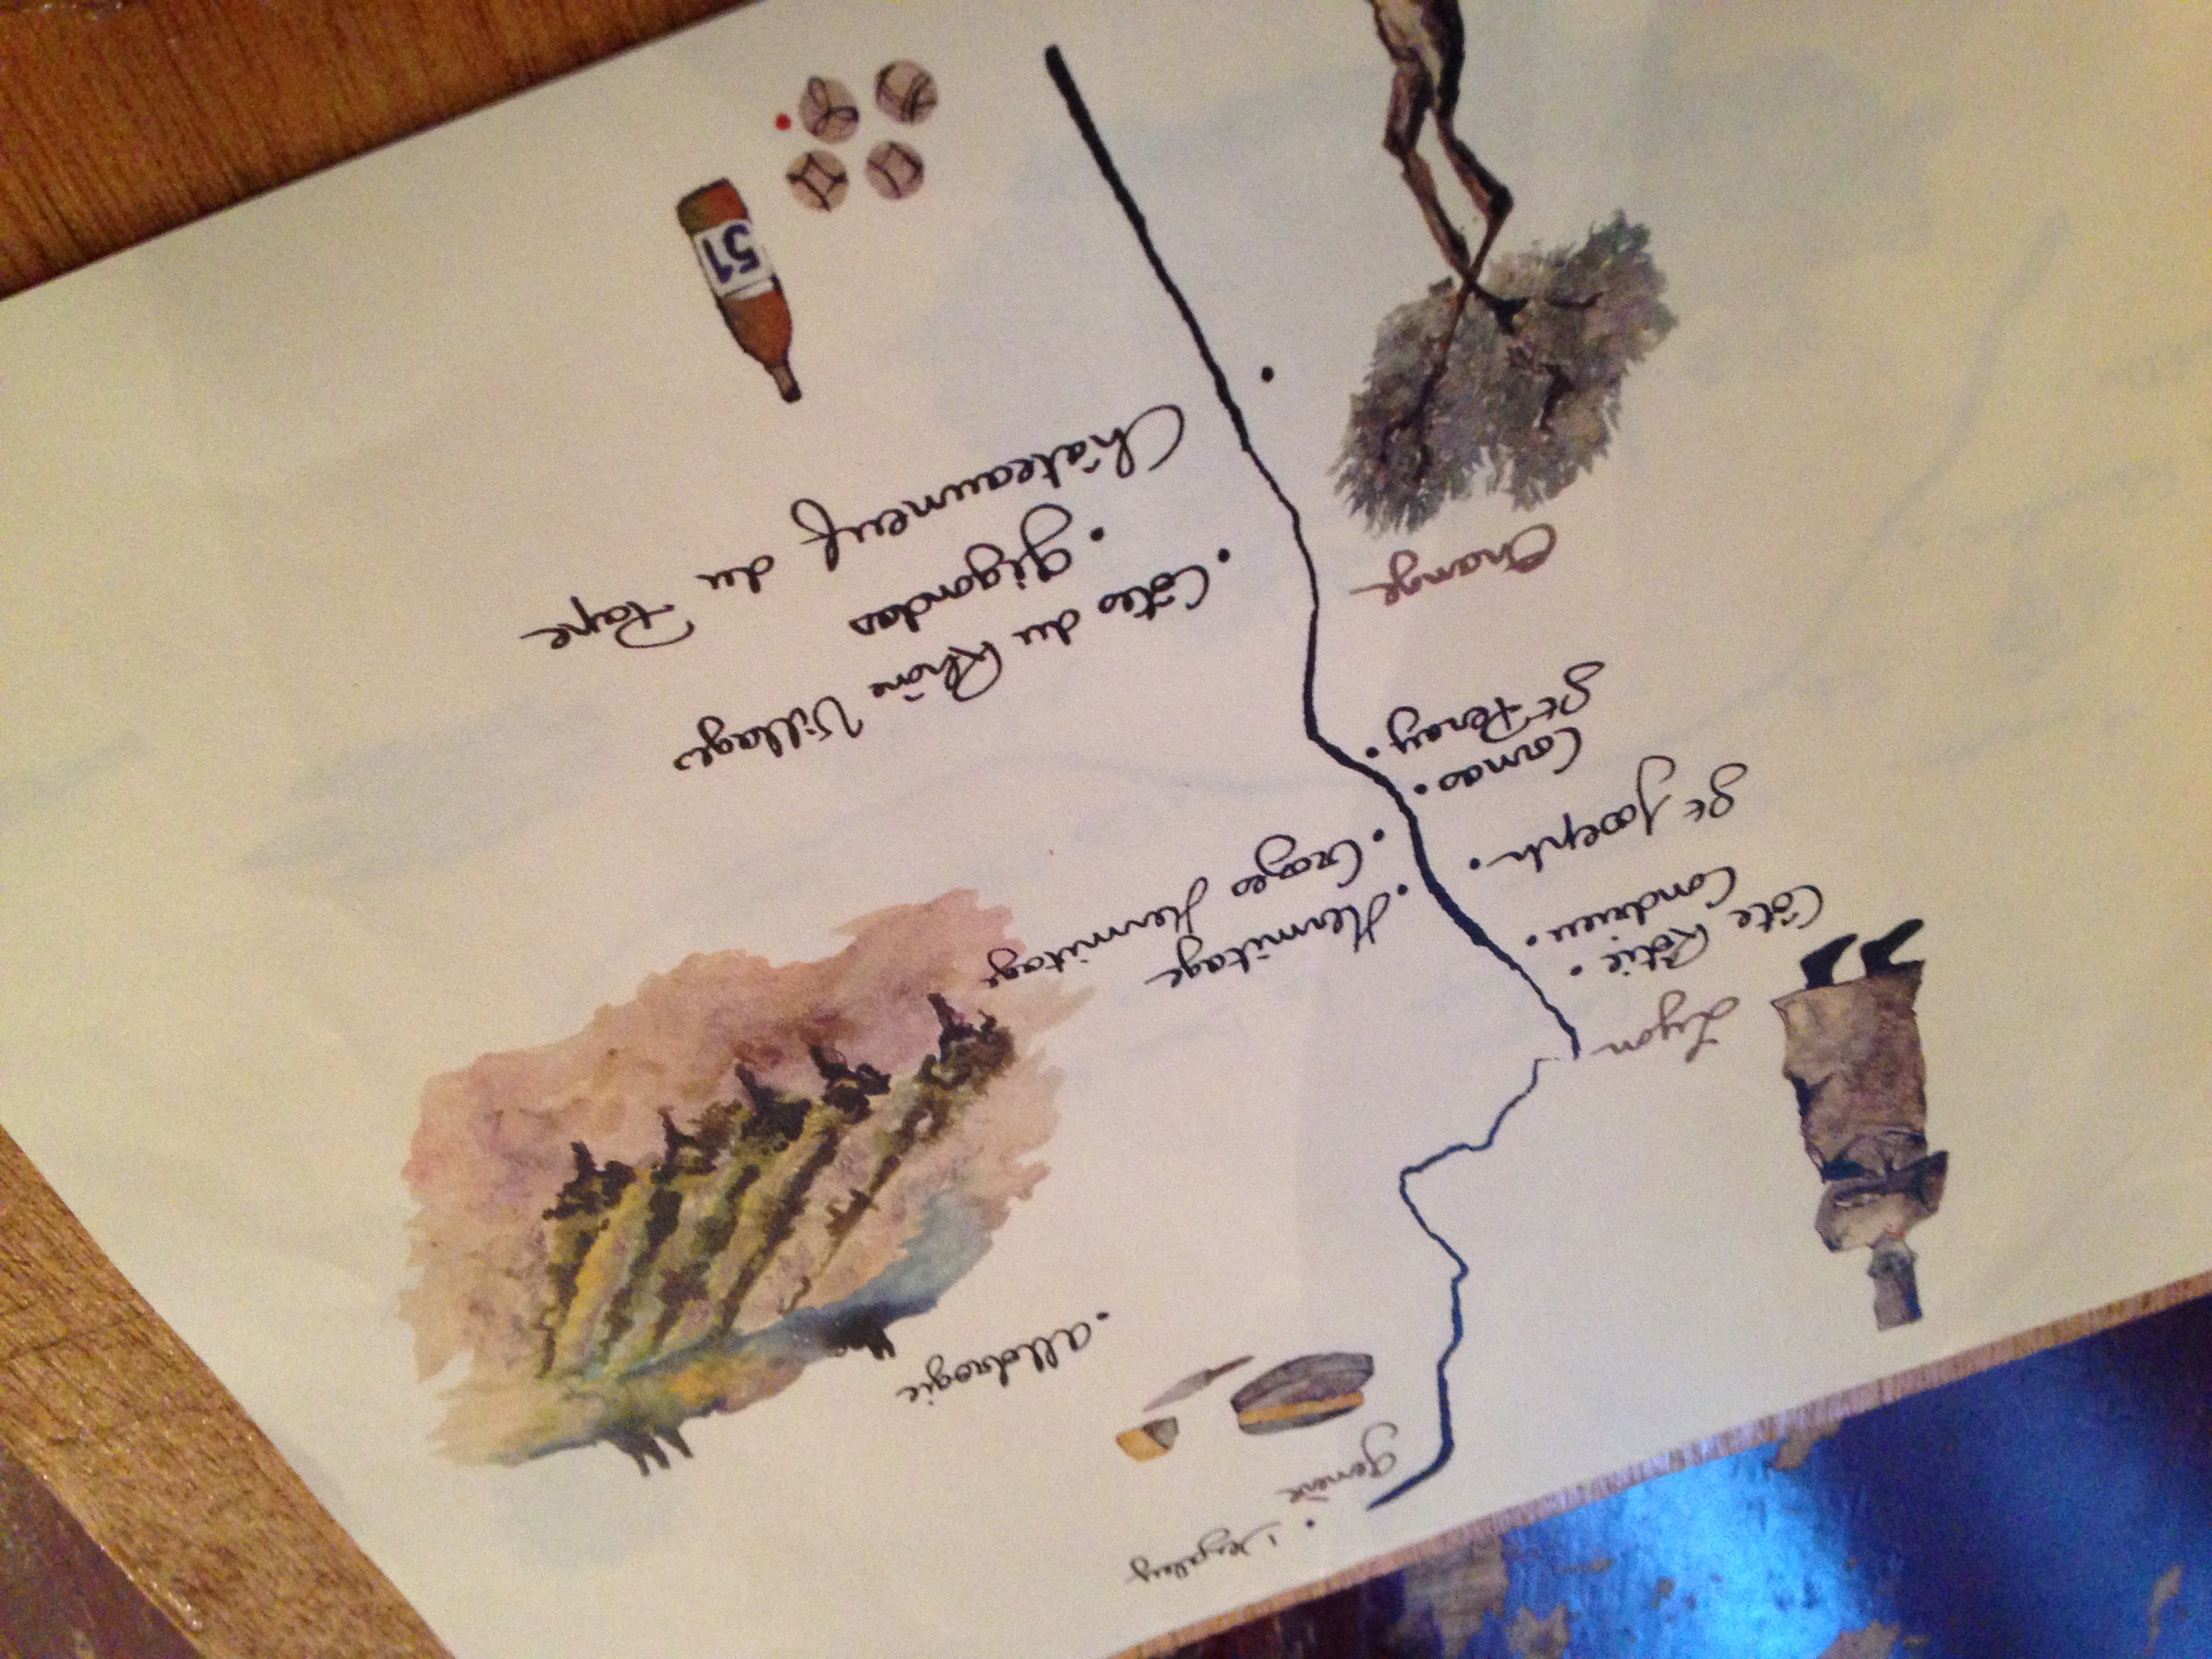 Genève
allobrogie
Lyon
Côte Rôtie
Condrieu
St Joseph
Hermitage
Crozes Hermitage
Cornas
St Peray
Orange
Côtes du Rhône Villages
gigondas
Châteauneuf du Pape
51